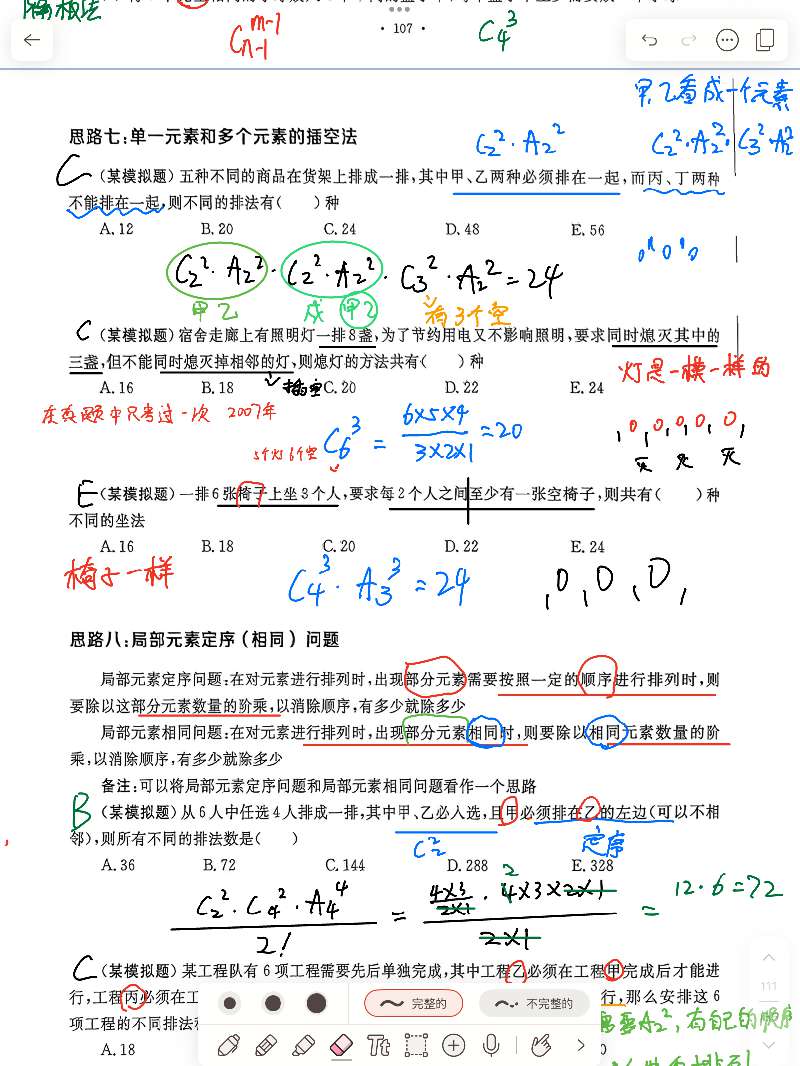 隔板法
C_{n-1}^{m-1}
· 107 ·
C_4^3
甲乙看成一个元素
思路七:单一元素和多个元素的插空法
C_2^2 · A_2^2
C_2^2 · A_2^2 · C_3^2 · A_2^2
C (某模拟题) 五种不同的商品在货架上排成一排,其中甲、乙两种必须排在一起,而丙、丁两种
不能排在一起,则不同的排法有( )种
A. 12 B. 20 C. 24 D. 48 E. 56
C_2^2 · A_2^2 · C_2^2 · A_2^2 · C_3^2 · A_2^2 = 24
甲乙
甲乙
3个空
C (某模拟题) 宿舍走廊上有照明灯一排8盏,为了节约用电又不影响照明,要求同时熄灭其中的
三盏,但不能同时熄灭掉相邻的灯,则熄灯的方法共有( )种
A. 16 B. 18 C. 20 D. 22 E. 24
插空
灯是一模一样的
在真题中只考过一次 2007年
C_6^3 = 6×5×4 / 3×2×1 = 20
5个灯6个空
灭 灭 灭
E (某模拟题) 一排6张椅子上坐3个人,要求每2个人之间至少有一张空椅子,则共有( )种
不同的坐法
A. 16 B. 18 C. 20 D. 22 E. 24
椅子一样
C_4^3 · A_3^3 = 24
思路八:局部元素定序(相同)问题
局部元素定序问题:在对元素进行排列时,出现部分元素需要按照一定的顺序进行排列时,则
要除以这部分元素数量的阶乘,以消除顺序,有多少就除多少
局部元素相同问题:在对元素进行排列时,出现部分元素相同时,则要除以相同元素数量的阶
乘,以消除顺序,有多少就除多少
备注:可以将局部元素定序问题和局部元素相同问题看作一个思路
B (某模拟题) 从6人中任选4人排成一排,其中甲、乙必入选,且甲必须排在乙的左边(可以不相
邻),则所有不同的排法数是( )
C_2^2
定序
A. 36 B. 72 C. 144 D. 288 E. 328
C_2^2 · C_4^2 · A_4^4 / 2! = 4×3 / 2×1 · 4×3×2×1 / 2×1 = 12 · 6 = 72
2
C (某模拟题) 某工程队有6项工程需要先后单独完成,其中工程乙必须在工程甲完成后才能进
行,工程丙必须在工
行,那么安排这6
项工程的不同排法
A. 18
A_2^2, 有自己的顺序
完整的
不完整的
111
Tt